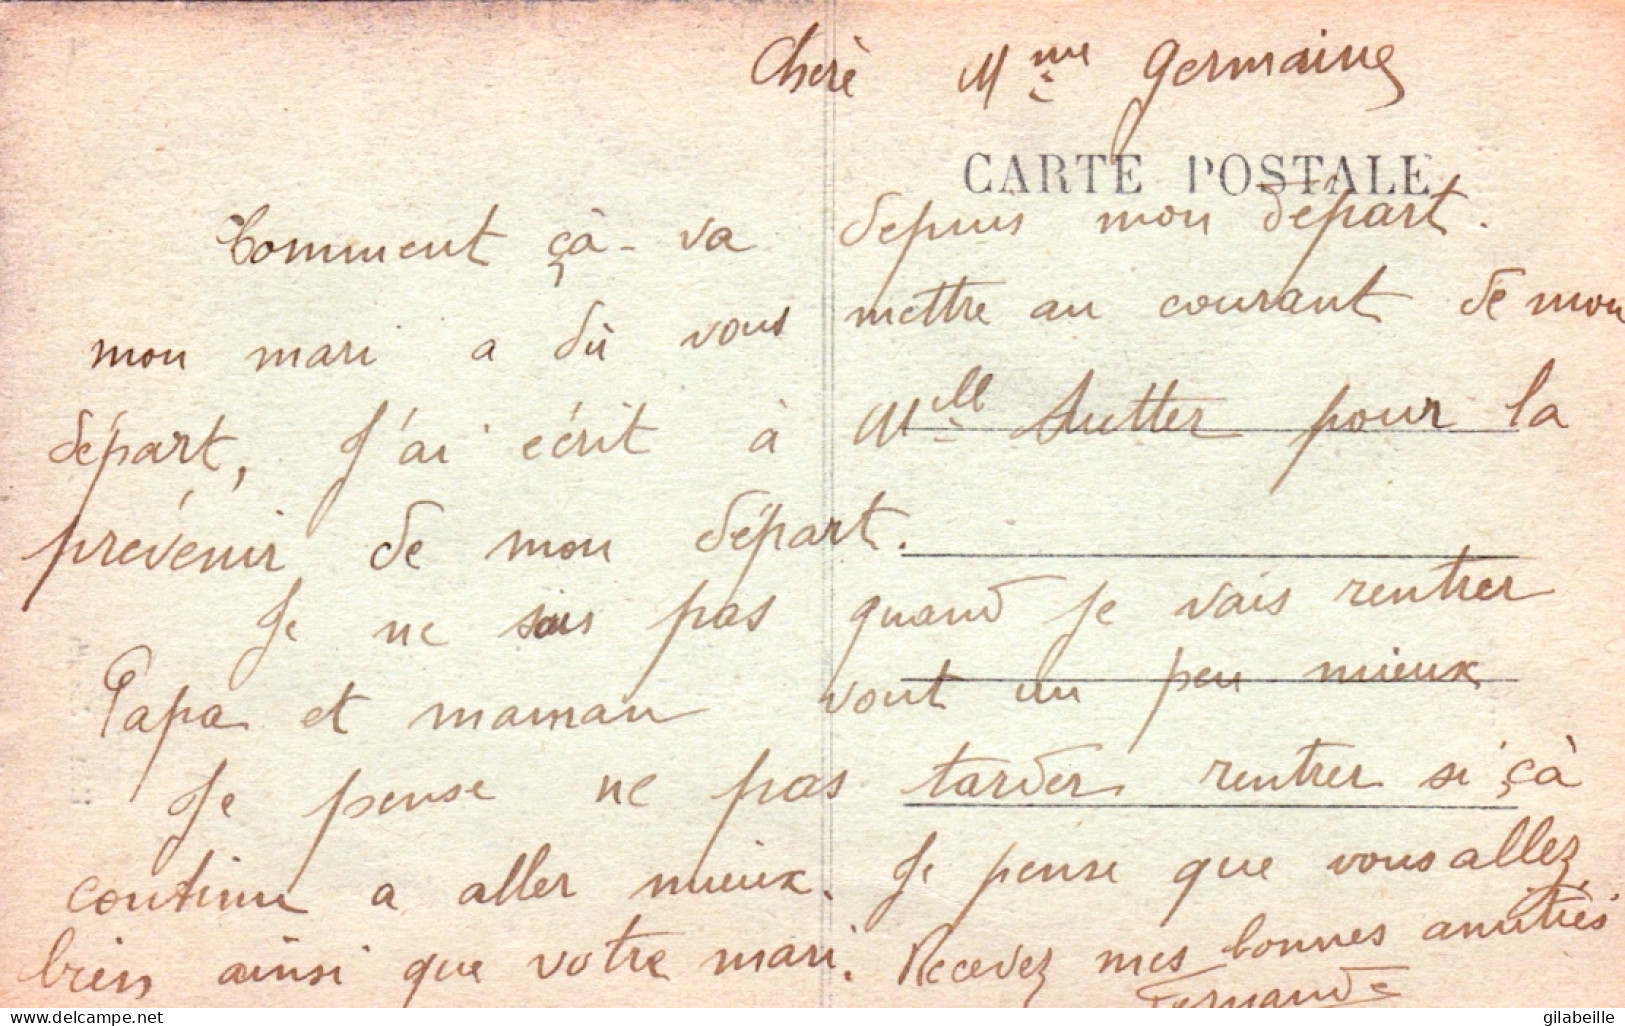 Cherè Mme Germaine
CARTE POSTALE
Comment çà-va depuis mon départ.
mon mari a dû vous mettre au courant de mon
départ, J'ai écrit à Mlle Sutter pour la
prévénir de mon départ.
Je ne sais pas quand je vais rentrer
Papa et maman vont un peu mieux
Je pense ne pas tarder rentrer si çà
continu a aller mieux. Je pense que vous allez
bien ainsi que votre mari. Recevez mes bonnes amitiés
Fernande
delcampe.net
gilabeille